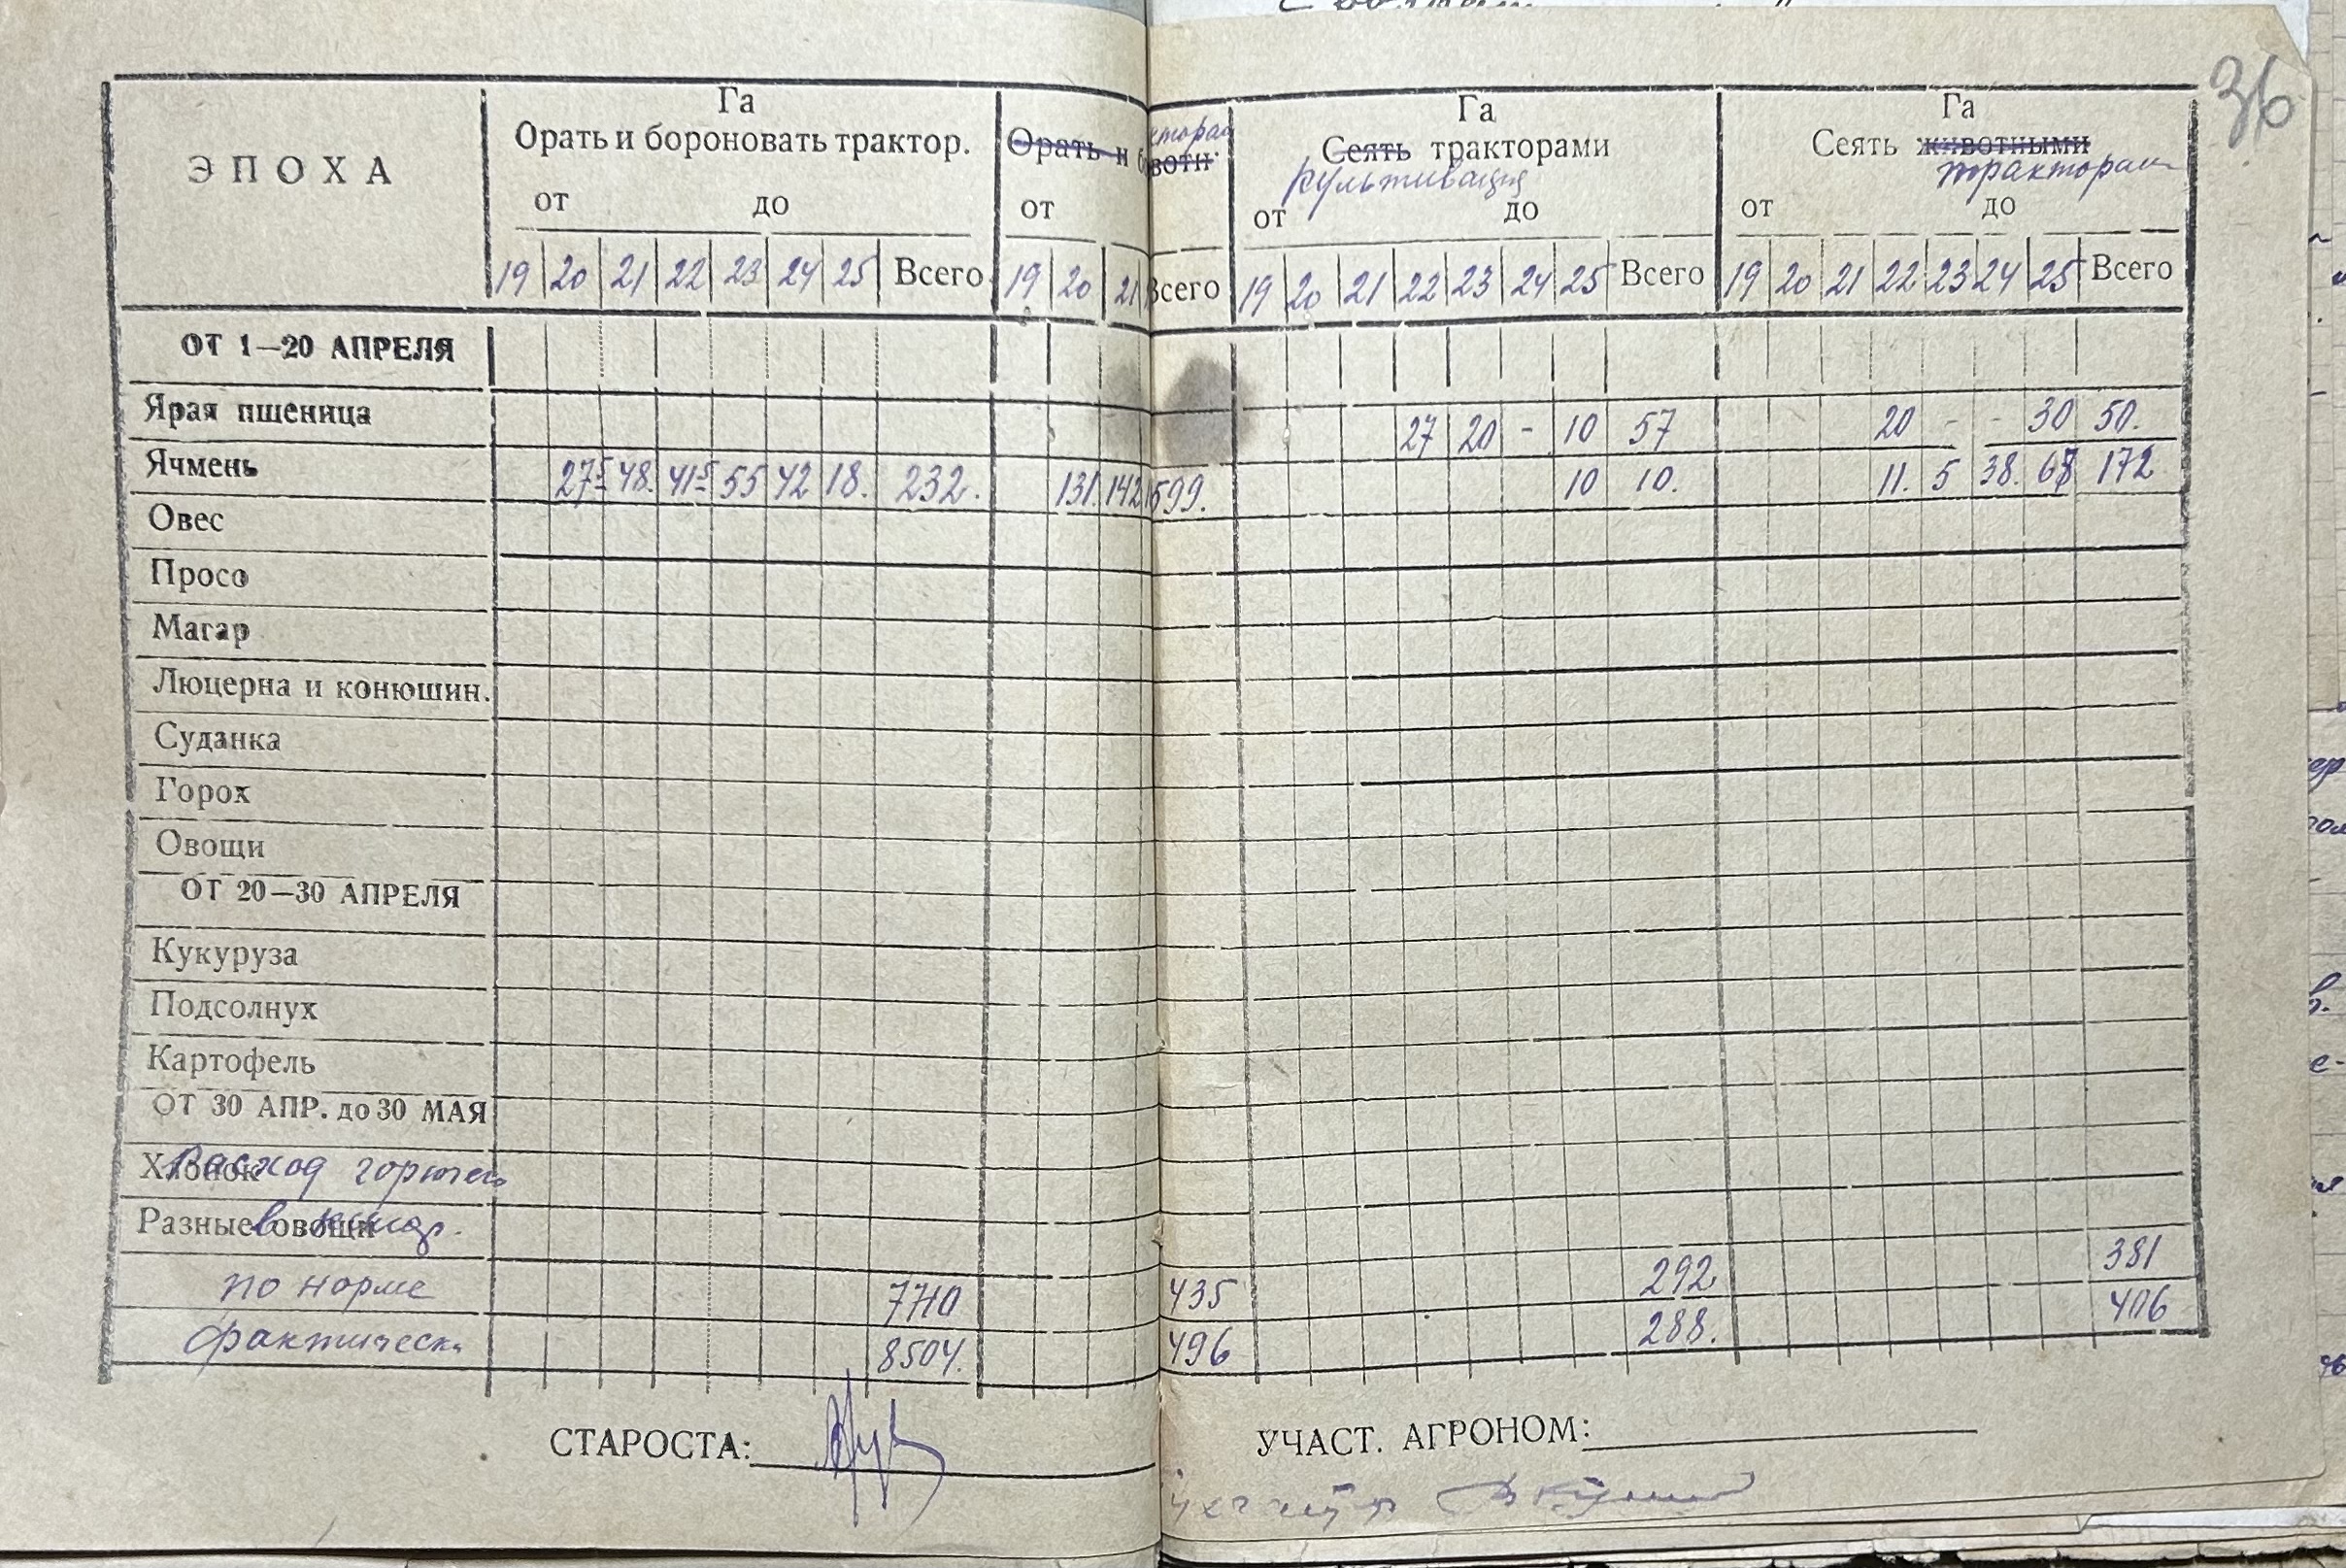 36
ЭПОХА
Га
Орать и бороновать трактор.
от до
19 20 21 22 23 24 25 Всего
Орать и б
от
19 20 21
вотн.
Всего
Га
Сеять тракторами
культивация
от до
19 20 21 22 23 24 25 Всего
Га
Сеять животными
тракторам
от до
19 20 21 22 23 24 25 Всего
ОТ 1—20 АПРЕЛЯ
Ярая пшеница 27 20 - 10 57 20 - - 30 50.
Ячмень 27⁵ 48. 41⁵ 55 42 18. 232. 131. 142 599. 10 10. 11. 5 38. 68 172
Овес
Просо
Магар
Люцерна и конюшин.
Суданка
Горох
Овощи
ОТ 20—30 АПРЕЛЯ
Кукуруза
Подсолнух
Картофель
ОТ 30 АПР. до 30 МАЯ
Хлопок
Расход горючего
Разные овощи
в
по норме 7710 435 292 381
фактически 8504. 496 288. 406
СТАРОСТА:
УЧАСТ. АГРОНОМ: